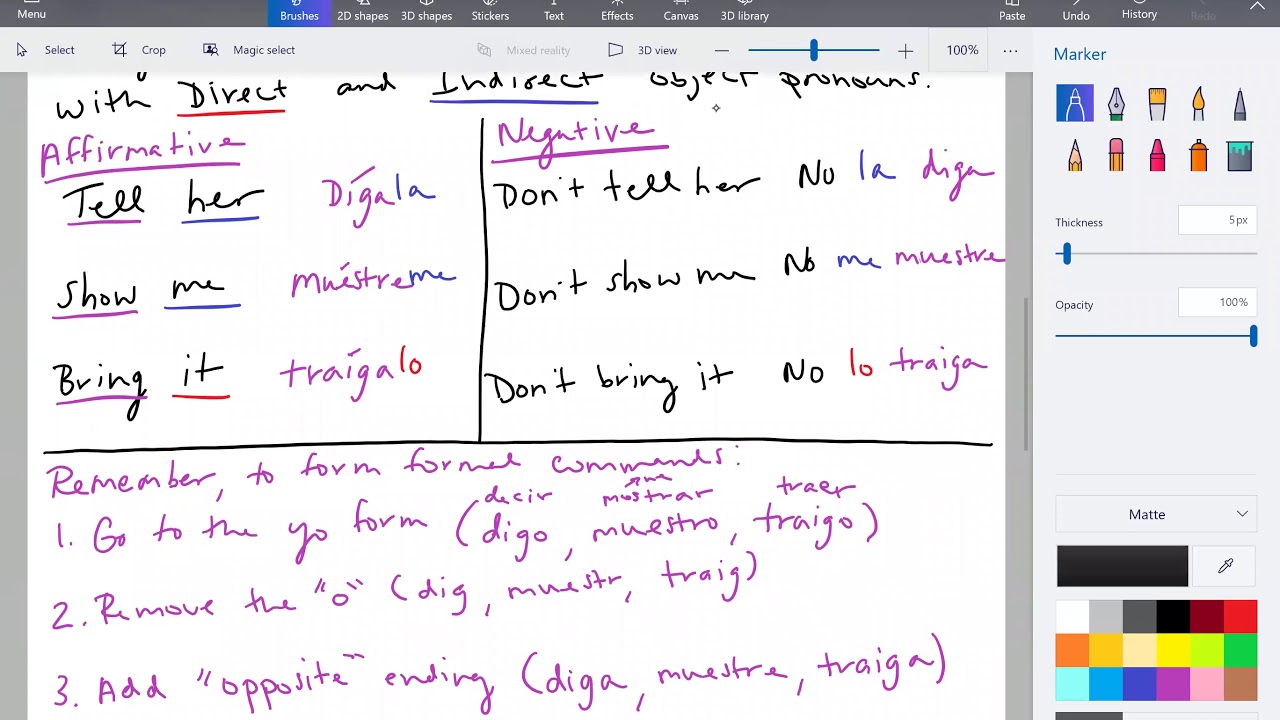 Menu
Brushes 2D shapes 3D shapes Stickers Text Effects Canvas 3D library Paste Undo History Redo
Select Crop Magic select Mixed reality 3D view 100% ...
with Direct and Indirect object pronouns.
Affirmative
Tell her Dígala
Show me muéstreme
Bring it traígalo
Negative
Don't tell her No la diga
Don't show me No me muestre
Don't bring it No lo traiga
Remember, to form formal commands:
decir mostrar traer
1. Go to the yo form (digo, muestro, traigo)
2. Remove the "o" (dig, muestr, traig)
3. Add "opposite" ending (diga, muestre, traiga)
Marker
Thickness 5px
Opacity 100%
Matte